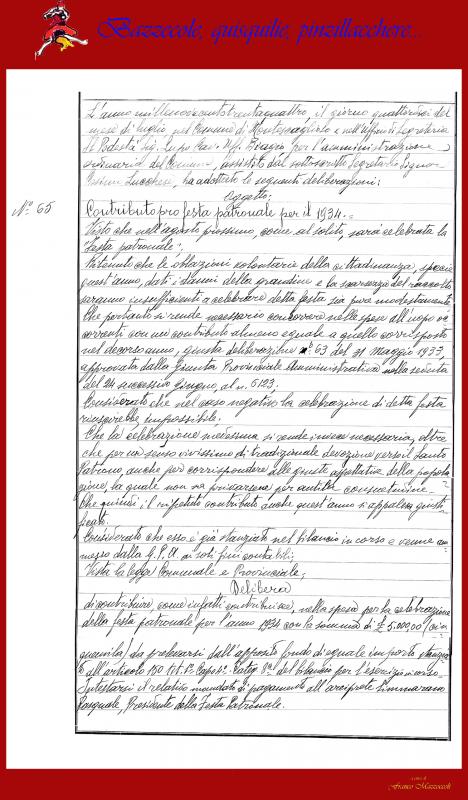 Bazzecole, quisquilie, pinzillacchere...
L'anno millenovecentotrentaquattro, il giorno quattordici del
mese di luglio, nel Comune di Montescaglioso e nell'ufficio di Segreteria
il Podestà Sig. Lupo Cav. Uff. Biagio per l'amministrazione
ordinaria del Comune, assistito dal sottoscritto Segretario Signor
Lucchese, ha adottato le seguenti deliberazioni:
Oggetto:
N° 65
Contributo pro festa patronale per il 1934.=
Visto che nell'agosto prossimo, come al solito, sarà celebrata la
"Festa patronale";
Ritenuto che le oblazioni volontarie della cittadinanza, specie
quest'anno, dati i danni della grandine e la scarsezza del raccolto
saranno insufficienti a celebrare detta festa sia pure modestamente
Che pertanto si rende necessario concorrere nelle spese all'uopo oc-
correnti con un contributo almeno eguale a quello corrisposto
nel decorso anno, giusta deliberazione n° 63 del 31 Maggio 1933,
approvata dalla Giunta Provinciale Amministrativa nella seduta
del 24 successivo Giugno, al n. 6123;
Considerato che nel caso negativo la celebrazione di detta festa
riuscirebbe impossibile.
Che la celebrazione medesima si rende invece necessaria, oltre
che per un senso vivissimo di tradizionale devozione verso il Santo
Patrono, anche per corrispondere alle giuste aspettative della popola-
zione, la quale non sa privarsene per antica consuetudine.
Che quindi il ripetuto contributo anche quest'anno si appalesa giusti-
ficato.
Considerato che esso è già stanziato nel bilancio in corso e venne am-
messo dalla G.P.A. ai soli fini contabili;
Vista la legge Comunale e Provinciale;
Delibera
di contribuire, come infatti contribuisce, nella spesa per la celebrazione
della festa patronale per l'anno 1934 con la somma di £ 5.000,00 (cin-
quemila) da prelevarsi dall'apposito fondo di eguale importo stanzia-
to all'articolo 150 Tit. I° Capo 4° Catg. 8ª del bilancio per l'esercizio in corso.
Intestarsi il relativo mandato di pagamento all'arciprete Simmarano
Pasquale, Presidente della Festa Patronale.
a cura di
Franco Mazzoccoli